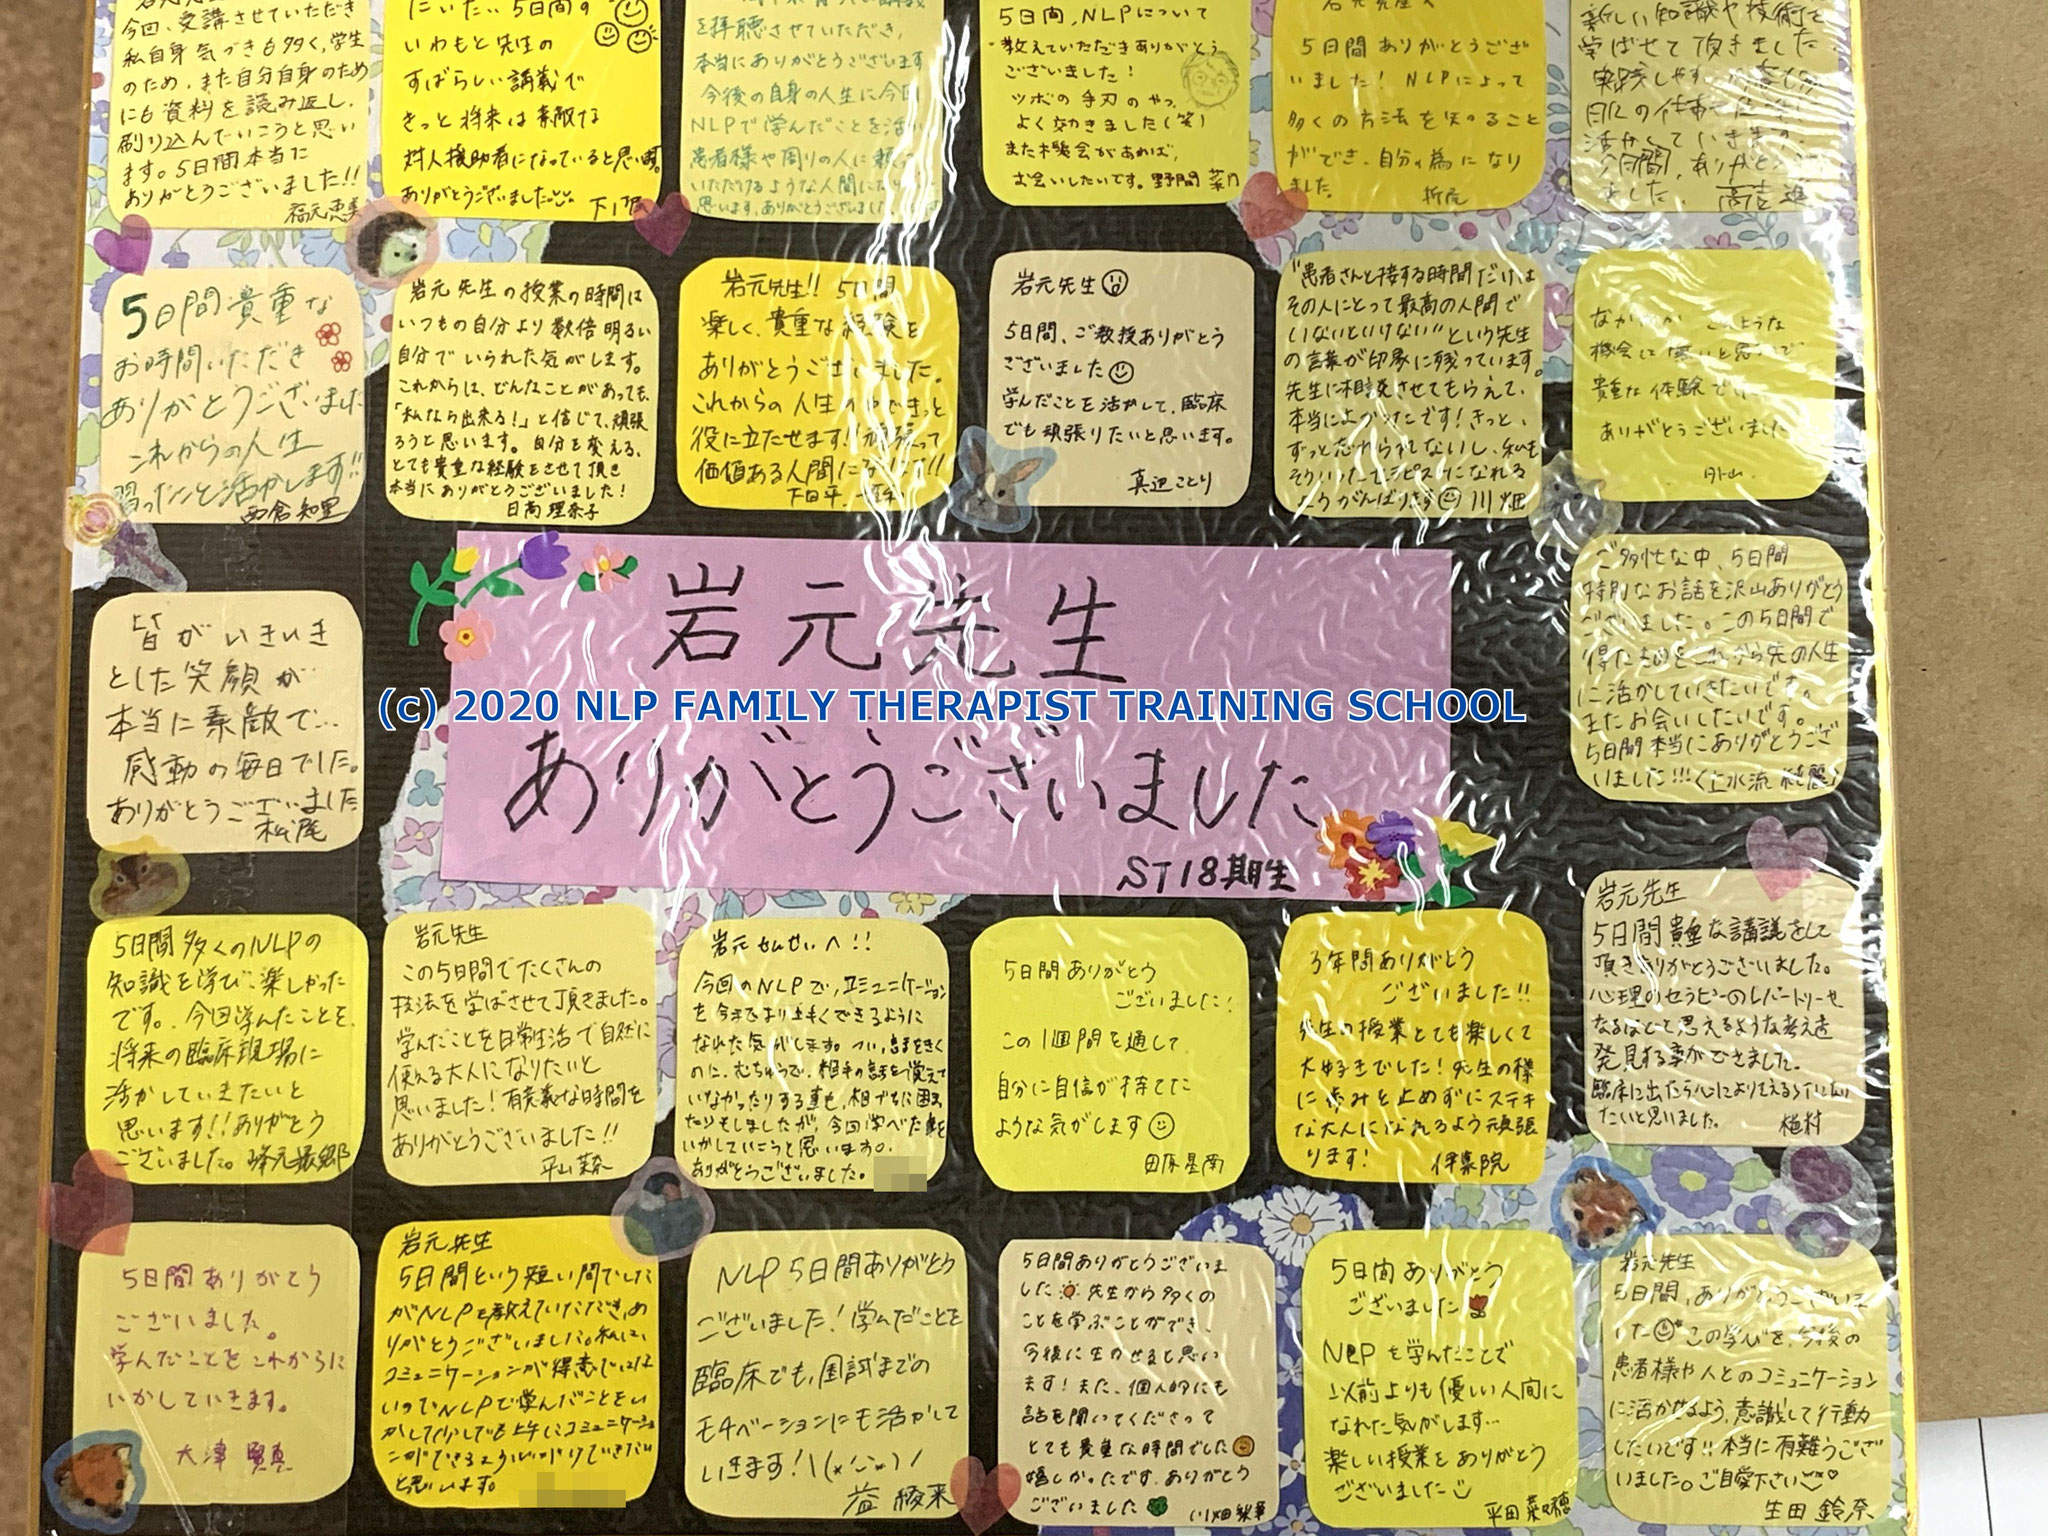 今回、受講させていただき
私自身気づきも多く、学生
のため、また自分自身のため
にも資料を読み返し、
刷り込んでいこうと思い
ます。5日間本当に
ありがとうございました!!
福元恵美
5日間の
いわもと先生の
すばらしい講義で
きっと将来は素敵な
対人援助者になっていると思います。
ありがとうございました
を拝聴させていただき、
本当にありがとうございます
今後の自身の人生に今回
NLPで学んだことを活かし
患者様や周りの人に頼って
いただけるような人間になり
思います。ありがとうございました
5日間、NLPについて
教えていただきありがとう
ございました!
ツボの手刃のやつ、
よく効きました(笑)
また機会があれば、
お会いしたいです。野間 菜乃
5日間ありがとうござ
いました! NLPによって
多くの方法を知ること
ができ、自分の為になり
ました。
新しい知識や技術を
学ばせて頂きました。
活かしていきます。
5日間、ありがとうござい
ました。
5日間貴重な
お時間いただき
ありがとうございました
これからの人生
習ったこと活かします!!
西倉知里
岩元先生の授業の時間は
いつもの自分より数倍明るい
自分でいられた気がします。
これからは、どんなことがあっても、
「私なら出来る!」と信じて、頑張
ろうと思います。自分を変える、
とても貴重な経験をさせて頂き
本当にありがとうございました!
日高理奈子
岩元先生!! 5日間
楽しく、貴重な経験を
ありがとうございました。
これからの人生の中できっと
役に立たせます!頑張って
価値ある人間になります!!
岩元先生
5日間、ご教授ありがとう
ございました
学んだことを活かして、臨床
でも頑張りたいと思います。
真辺ことり
"患者さんと接する時間だけは
その人にとって最高の人間で
いないといけない"という先生
の言葉が印象に残っています。
先生に相談させてもらえて、
本当によかったです!きっと、
ずっと忘れられないし、私も
そういったセラピストになれる
ようがんばります 川畑
なかなか このような
機会は無いと思うので
貴重な体験でした
ありがとうございました
外山
岩元先生
ありがとうございました
ST18期生
(c) 2020 NLP FAMILY THERAPIST TRAINING SCHOOL
皆がいきいき
とした笑顔が
本当に素敵で…
感動の毎日でした。
ありがとうございました
松尾
ご多忙な中、5日間
特別なお話を沢山ありがとう
ございました。この5日間で
得たものをこれから先の人生
に活かしていきたいです。
またお会いしたいです。
5日間本当にありがとうござ
いました!!!
5日間多くのNLPの
知識を学び、楽しかった
です。今回学んだことを
将来の臨床現場に
活かしていきたいと
思います!!ありがとう
ございました。
岩元先生
この5日間でたくさんの
技法を学ばせて頂きました。
学んだことを日常生活で自然に
使える大人になりたいと
思いました!有意義な時間を
ありがとうございました!!
岩元せんせいへ!!
今回のNLPで、コミュニケーション
を今までより上手くできるように
なれた気がします。つい、話をきく
のに、むちゅうで、相手の話を覚えて
いなかったりする事や、相づちに困っ
たりもしましたが、今回学べた事を
いかしていこうと思います。
ありがとうございました。
5日間ありがとう
ございました!
この1週間を通して
自分に自信が持てた
ような気がします
田原星南
3年間ありがとう
ございました!!
先生の授業とても楽しくて
大好きでした!先生の様
に歩みを止めずにステキ
な大人になれるよう頑張
ります!
伊集院
岩元先生
5日間貴重な講議をして
頂きありがとうございました。
心理のセラピーのレパートリーや
なるほどと思えるような考えを
発見する事ができました。
たいと思いました。 植村
5日間ありがとう
ございました。
学んだことをこれからに
いかしていきます。
大津
岩元先生
5日間という短い間でした
がNLPを教えていただき、あ
りがとうございました。私は、
コミュニケーションが得意ではな
いのでNLPで学んだことをい
かして少しでも上手にコミュニケーショ
ンができるよう
と思います。
NLP 5日間ありがとう
ございました!学んだことを
臨床でも、国試までの
モチベーションにも活かして
いきます!
5日間ありがとうございま
した 先生から多くの
ことを学ぶことができ、
今後に生かせると思い
ます!また、個人的にも
話を聞いてくださって
とても貴重な時間でした
嬉しかったです。ありがとう
ございました
川畑梨華
5日間ありがとう
ございました
NLPを学んだことで
以前よりも優しい人間に
なれた気がします…
楽しい授業をありがとう
ございました
平田菜々穂
岩元先生
5日間、ありがとうございま
した この学びを、今後の
患者様や人とのコミュニケーション
に活かせるよう、意識して行動
したいです!!本当に有難うござ
いました。ご自愛下さい
生田鈴奈